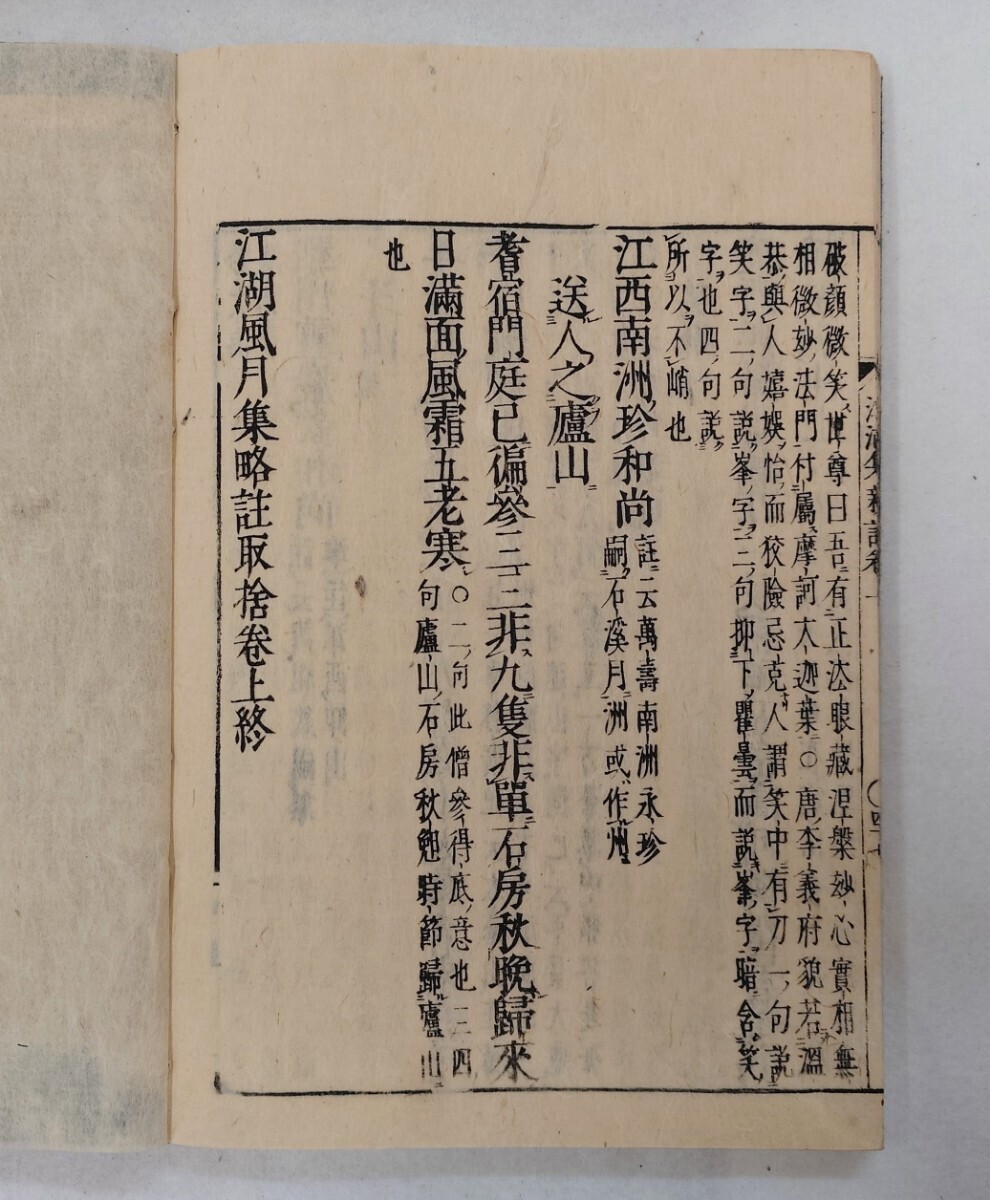 破顔微笑世尊曰吾有正法眼藏涅槃妙心實相無
相微妙法門付屬摩訶大迦葉○唐李義府貌若溫
恭與人嬉娯怡而狡險忌克人謂笑中有刀一句説
笑字二句説峯字三句抑下瞿曇而説峯字暗含笑
字也四句説
所以不峭也
江西南洲珍和尚
註云萬壽南洲永珍
嗣石溪月洲或作州
送人之廬山
耆宿門庭已徧參三三非九隻非單石房秋晩歸來
日滿面風霜五老寒
○二句此僧參得底意也三四
句廬山石房秋晩時節歸廬山
也
江湖風月集略註取捨卷上終